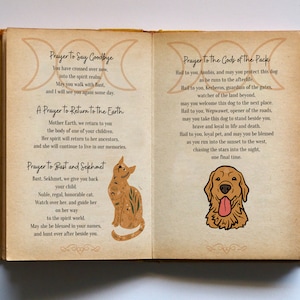 Prayer to Say Goodbye
You have crossed over now,
into the spirit realm.
May you walk with Bast,
and I will see you again some day.
A Prayer to Return to the Earth
Mother Earth, we return to you
the body of one of your children.
Her spirit will return to her ancestors,
and she will continue to live in our memories.
Prayer to Bast and Sekhmet
Bast, Sekhmet, we give you back
your child
Noble, regal, honorable cat.
Watch over her, and guide her
on her way
to the spirit world.
May she be blessed in your names,
and hunt ever after beside you.
Prayer to the Gods of the Pack
Hail to you, Anubis, and may you protect this dog
as he runs to the afterlife.
Hail to you, Kerberos, guardian of the gates,
watcher of the land beyond,
may you welcome this dog to the next place.
Hail to you, Wepwawet, opener of the roads,
may you take this dog to stand beside you,
brave and loyal in life and death.
Hail to you, loyal pet, and may you be blessed
as you run into the sunset to the west,
chasing the stars into the night,
one final time.